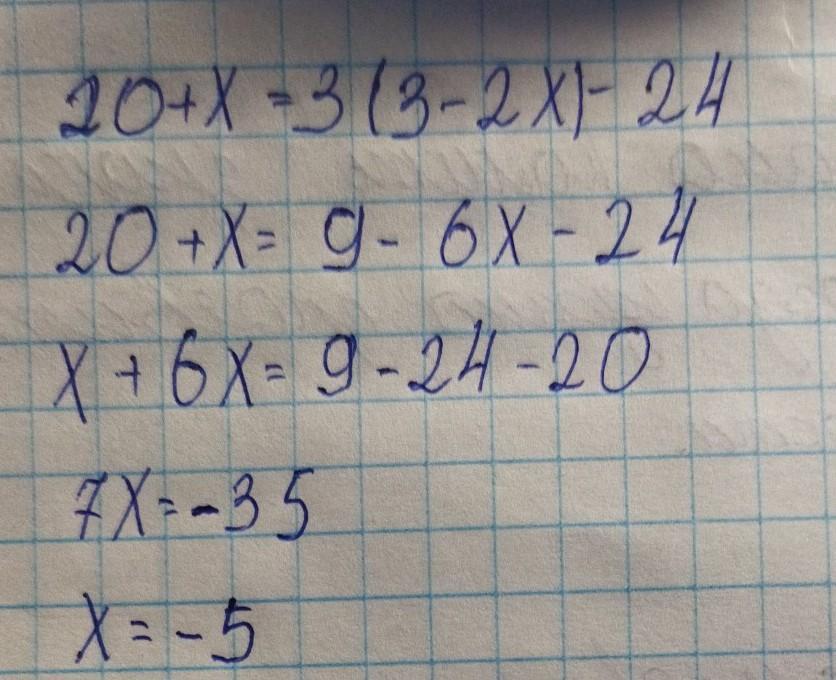 20+x=3(3-2x)-24
20+x=9-6x-24
x+6x=9-24-20
7x=-35
x=-5